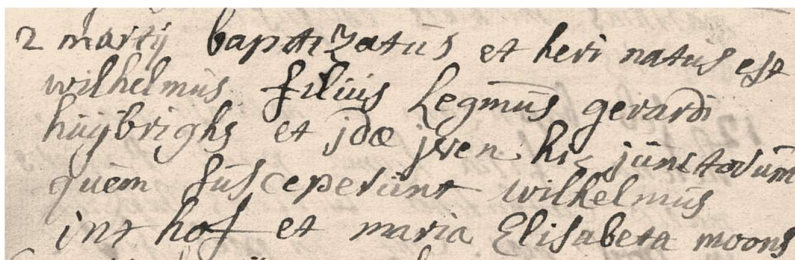 2 martij baptizatus et heri natus est
wilhelmus filius Legmus gerardi
huijbrighs et jdæ jven hic junctorum
quem susceperunt wilhelmus
int hof et maria Elisabeta moons